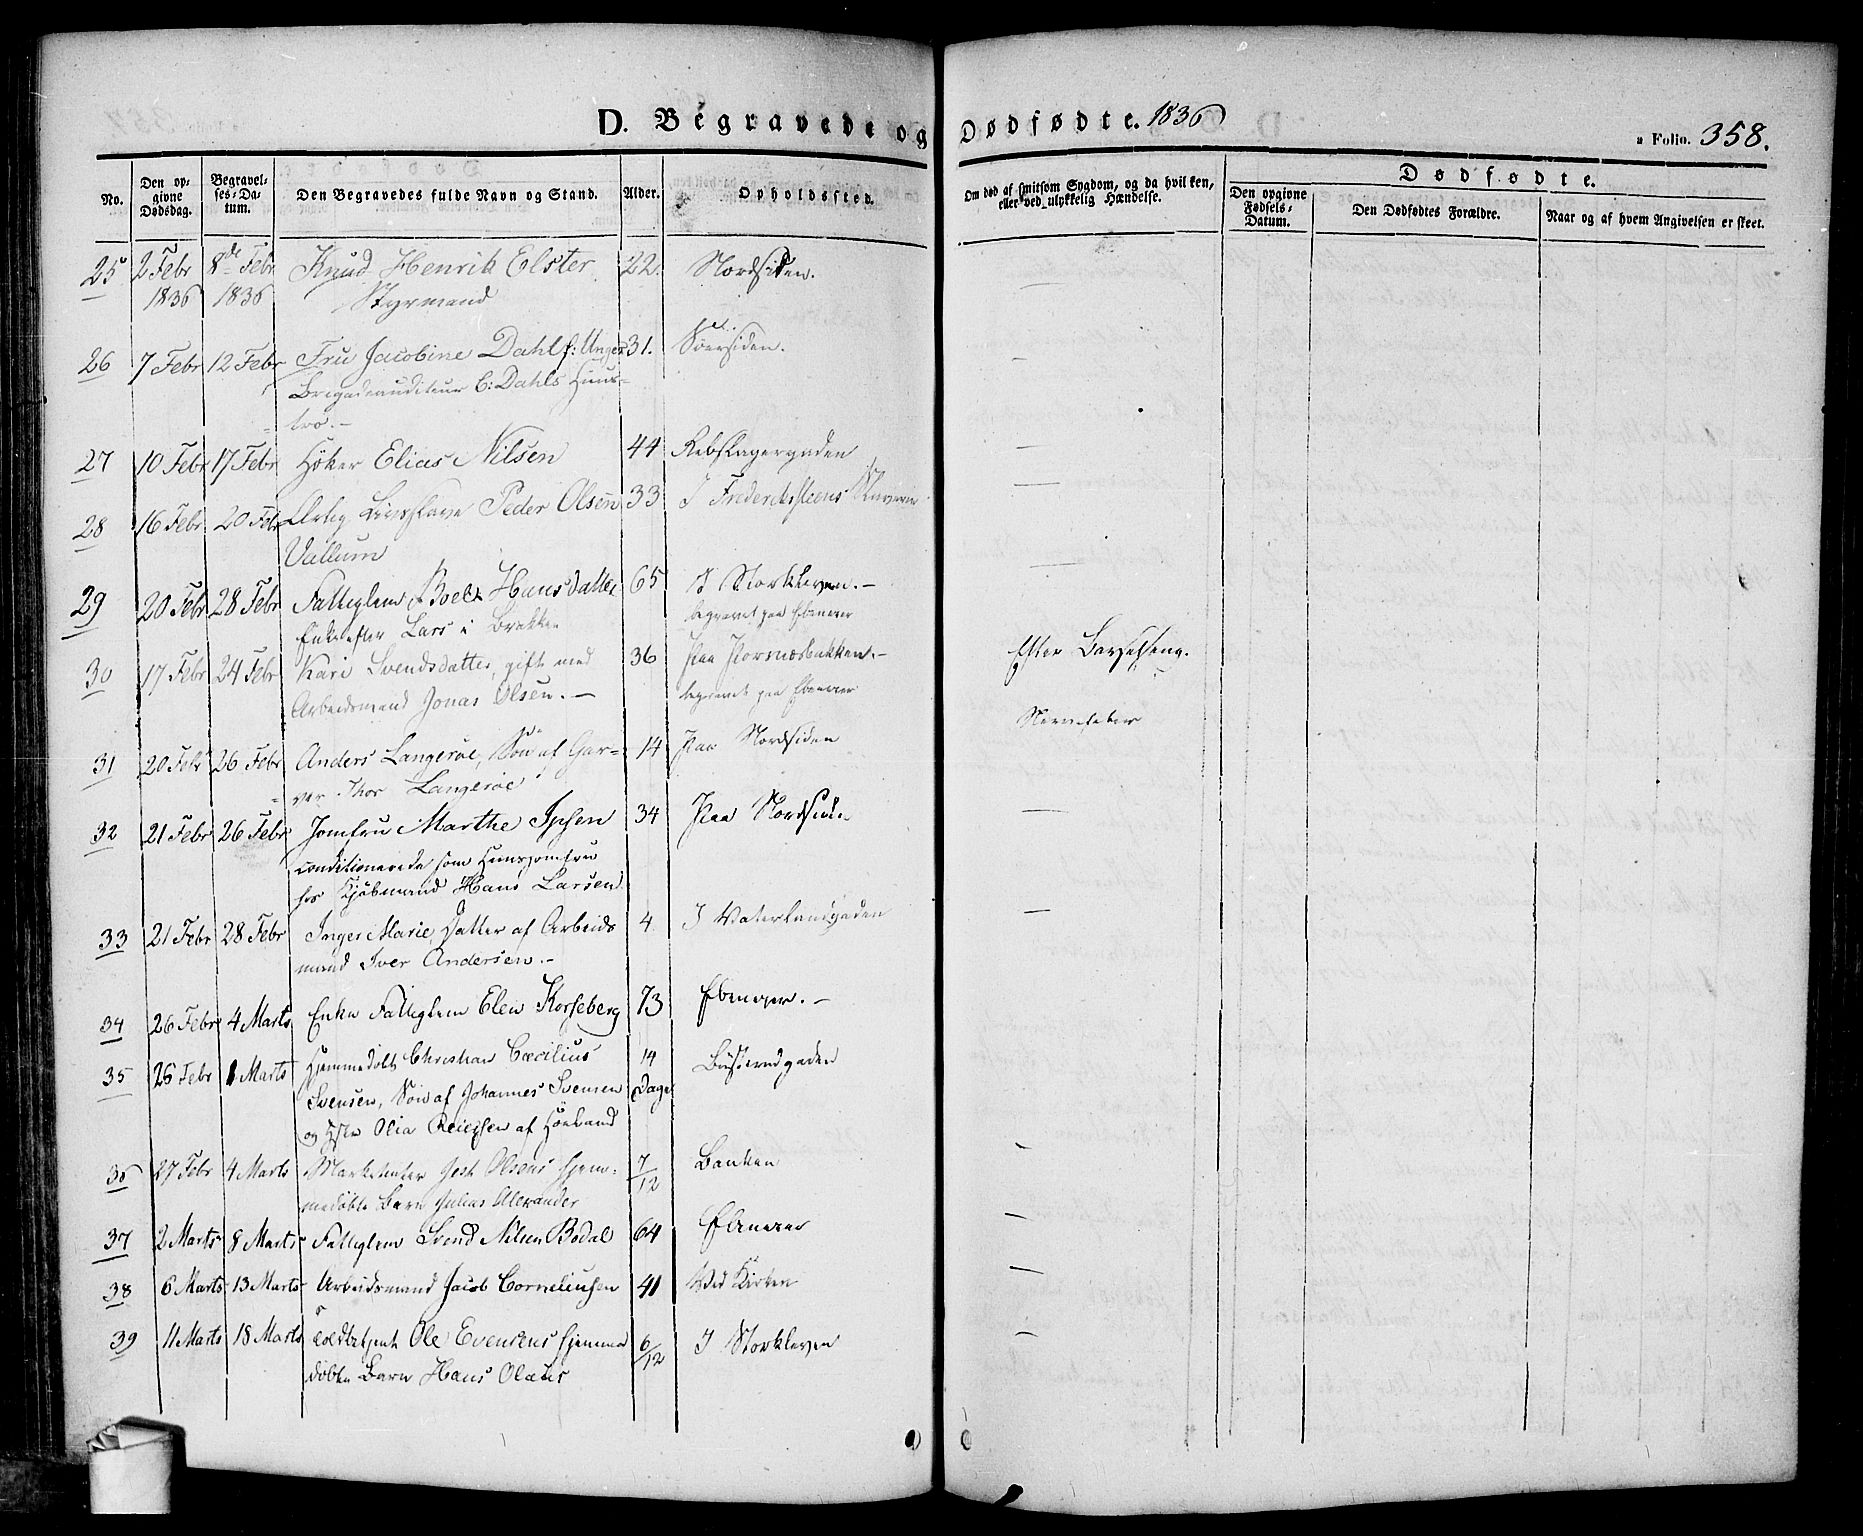 D. Begravede og Dødfødte. 1836
Folio. 358.
No.
Den opgivne Dødsdag.
Begravelses-Datum.
Den Begravedes fulde Navn og Stand.
Alder.
Opholdssted.
Om død af smitsom Sygdom, og da hvilken, eller ved ulykkelig Hændelse.
Dødfødte.
Den opgivne Fødsels-Datum.
Den Dødfødtes Forældre.
Naar og af hvem Angivelsen er skeet.
25 2 Febr 8de Febr Knud Henrik Elster 22. Nordsiden. —
1836 1836 Styrmand
26 7 Febr 12 Febr Fru Jacobine Dahl f: Unger 31. Søersiden. —
Brigadeauditeur C: Dahls Huus-
tro.-
27 10 Febr 17 Febr Höker Elias Nilsen 44 Rebslagergaden —
28 16 Febr 20 Febr Peder Olsen 33 I Frederikssteens Slaverie —
Vallum
29 20 Febr 28 Febr Fattiglem Boel Hansdatter 65 I Storkleven.- —
Enke efter Lars i Brekken begravet paa Ebenezer
30 17 Febr 24 Febr Kari Svendsdatter, gift med 36 Paa Porsnæsbakken.- Efter Barselseng.
Arbeidsmand Jonas Olsen.- begravet paa Ebenezer
31 20 Febr 26 Febr Anders Langeröe, Søn af Gar- 14 Paa Nordsiden Nervefeber
ver Thor Langeröe
32 21 Febr 26 Febr Jomfru Marthe Ipsen 34 Paa Nordsiden —
conditionerede som Huusjomfru
hos Kjöbmand Hans Larsen
33 21 Febr 28 Febr Inger Marie, Datter af Arbeids 4 I Vaterlandgaden —
mand Iver Andersen.-
34 26 Febr 4 Marts Enke Fattiglem Elen Korseberg 73 Ebenezer.-
35 26 Febr 1 Marts Hjemmedöbt Christian Cæcilius 14
Svensen, Søn af Johannes Svensen Dage
og Olia af
36 27 Febr 4 Marts Marketenter Olsens hjem- 7/12 Banken —
medöbte Barn Julius Alexander
37 2 Marts 8 Marts Fattiglem Svend Nilsen Bødal 64 Ebenezer —
38 6 Marts 13 Marts Arbeidsmand Jacob Corneliusen 41 Ved Kirken —
39 11 Marts 18 Marts Ole Evensens hjemme 6/12 I Storkleven —
döbte Barn Hans Olaus